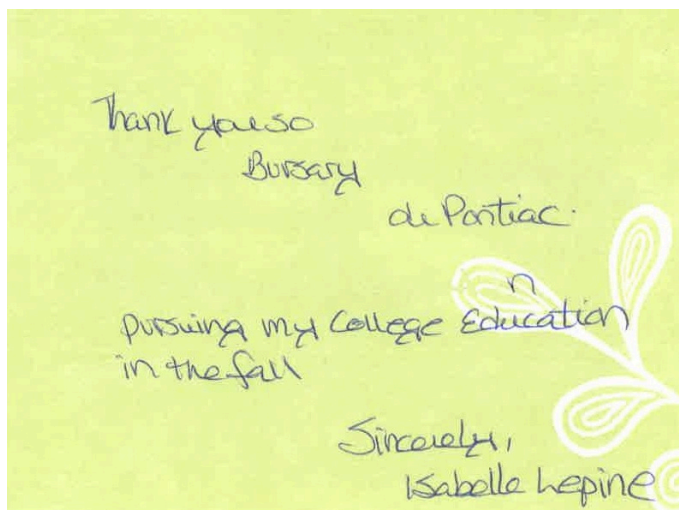 Thank you so
Bursary
de Pontiac.
n
pursuing my College Education
in the fall
Sincerely,
Isabelle Lepine